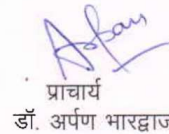 प्राचार्य
डॉ. अर्पण भारद्वाज